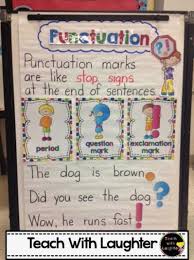 Punctuation
Punctuation marks
are like stop signs
at the end of sentences
period
question
mark
exclamation
mark
The dog is brown.
Did you see the dog?
Wow, he runs fast!
Teach With Laughter